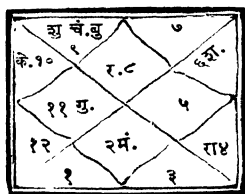 शु चं. बु ७
९
के. १० र. ८ ६ श.
११ गु. ५
१२ २ मं. रा४
१ ३